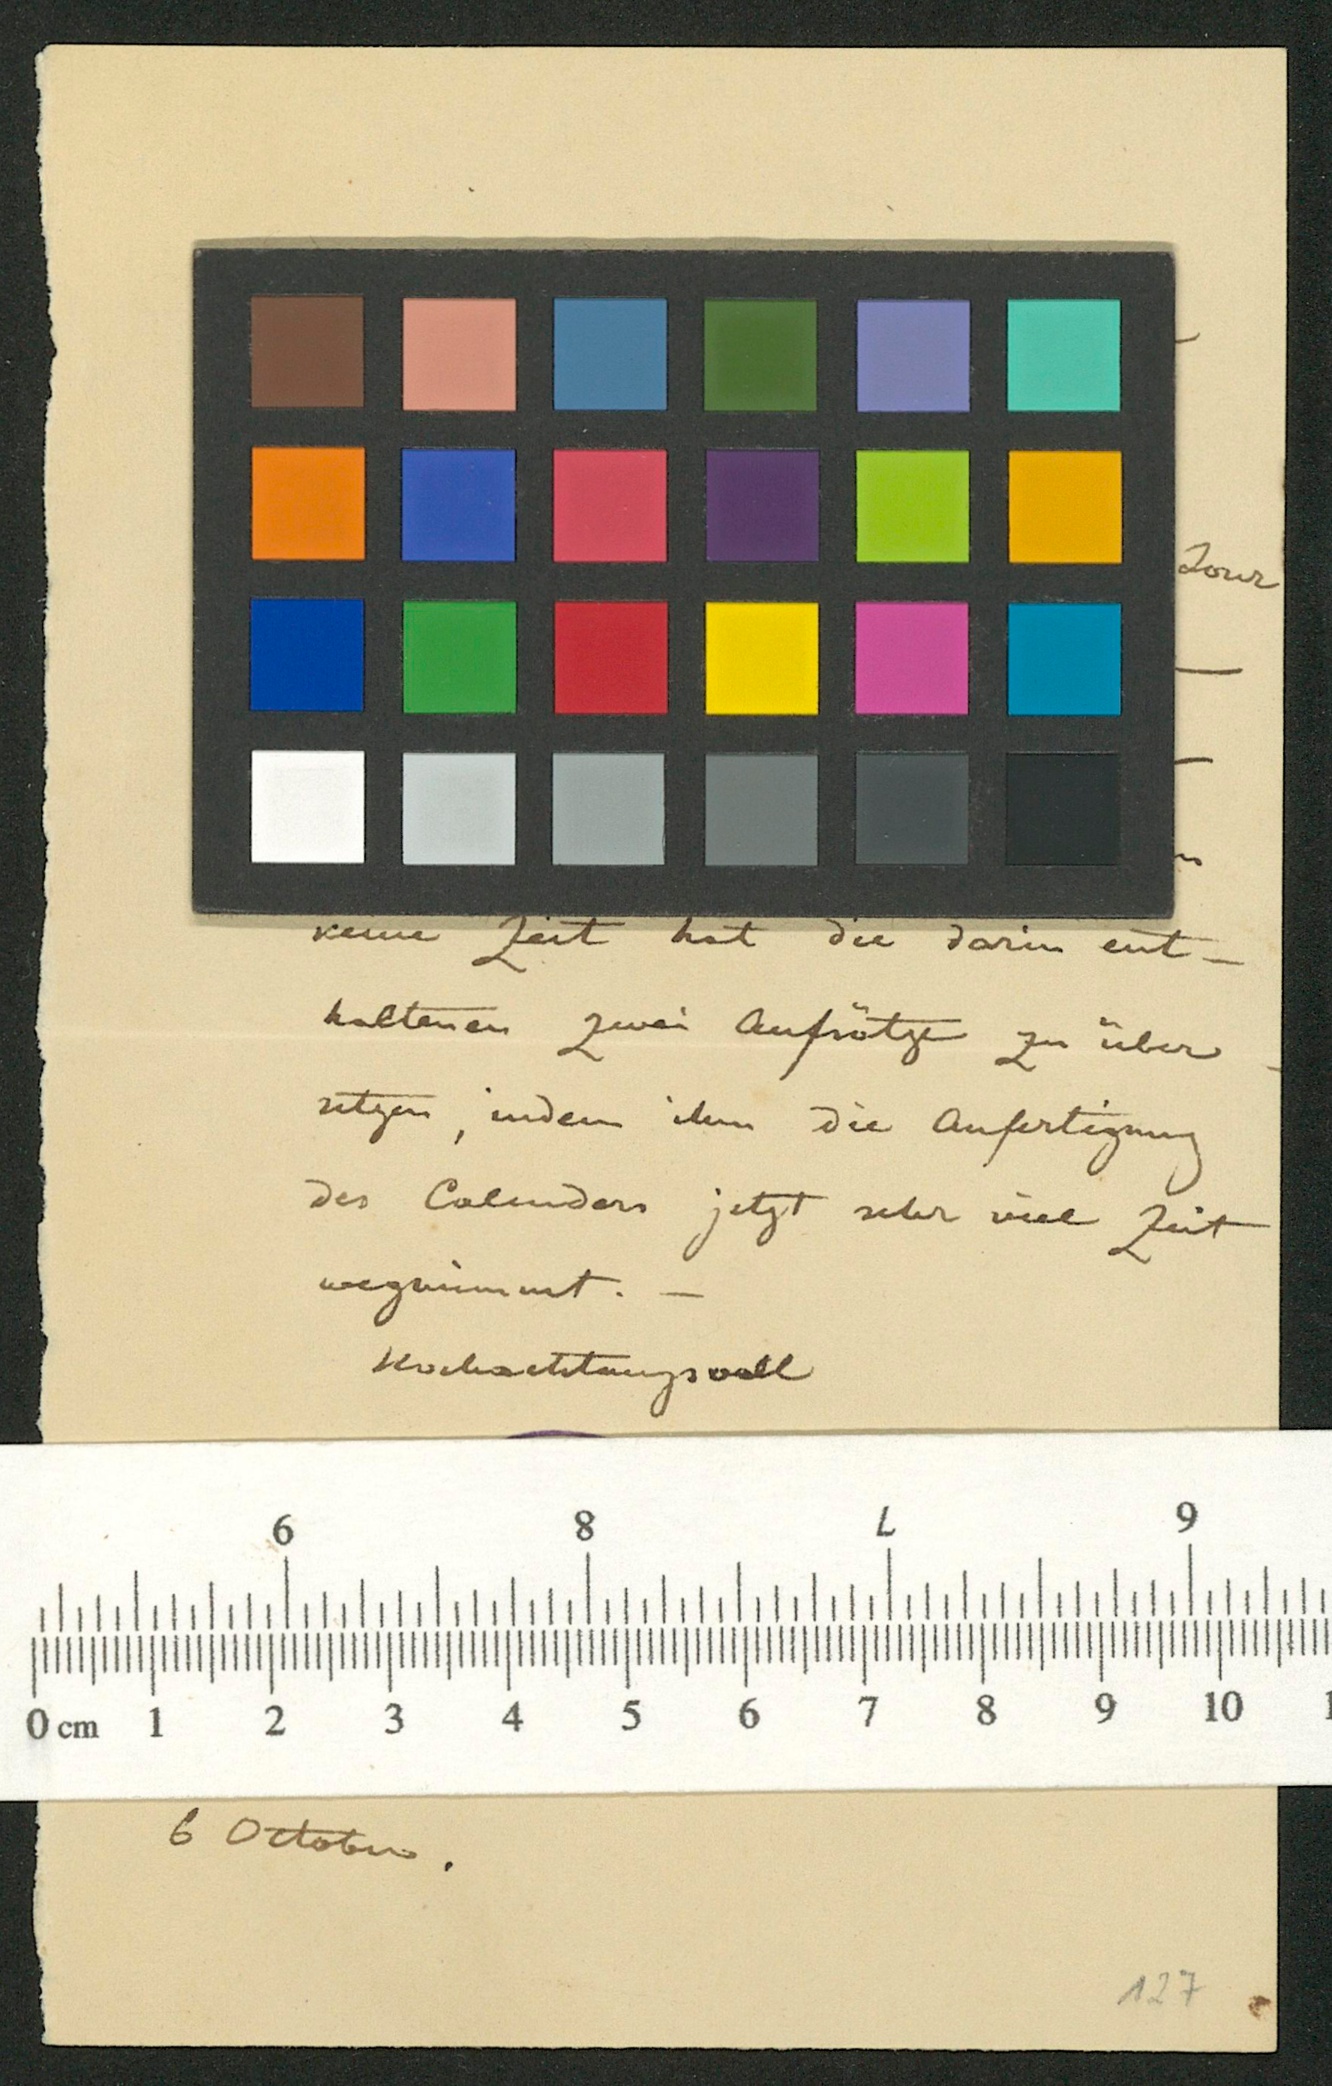 Jour
keine Zeit hat die darin ent-
haltenen zwei Aufsätze zu über-
setzen, indem ihm die Anfertigung
des Calenders jetzt sehr viel Zeit
wegnimmt. —
Hochachtungsvoll
6 8 7 9
0 cm 1 2 3 4 5 6 7 8 9 10 1
6 October.
127